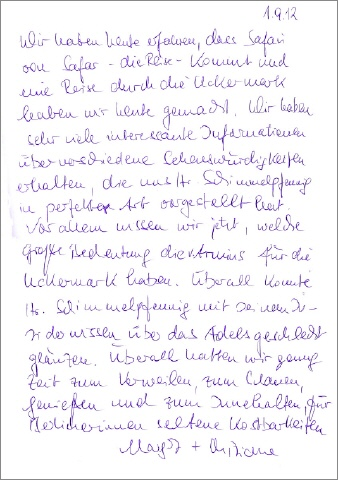 1.9.12
Wir haben heute erfahren, dass Safari
von Safar - die Reise - kommt und
eine Reise durch die Uckermark
haben wir heute gemacht. Wir haben
sehr viele interessante Informationen
über verschiedene Sehenswürdigkeiten
erhalten, die uns Hr. Schimmelpfennig
in perfekter Art vorgestellt hat.
Vor allem wissen wir jetzt, welche
große Bedeutung die Arnims für die
Uckermark haben. Überall konnte
Hr. Schimmelpfennig mit seinem In-
siderwissen über das Adelsgeschlecht
glänzen. Überall hatten wir genug
Zeit zum Verweilen, zum Staunen,
Genießen und zum Innehalten, für
Berlinerinnen seltene Kostbarkeiten
Margot +